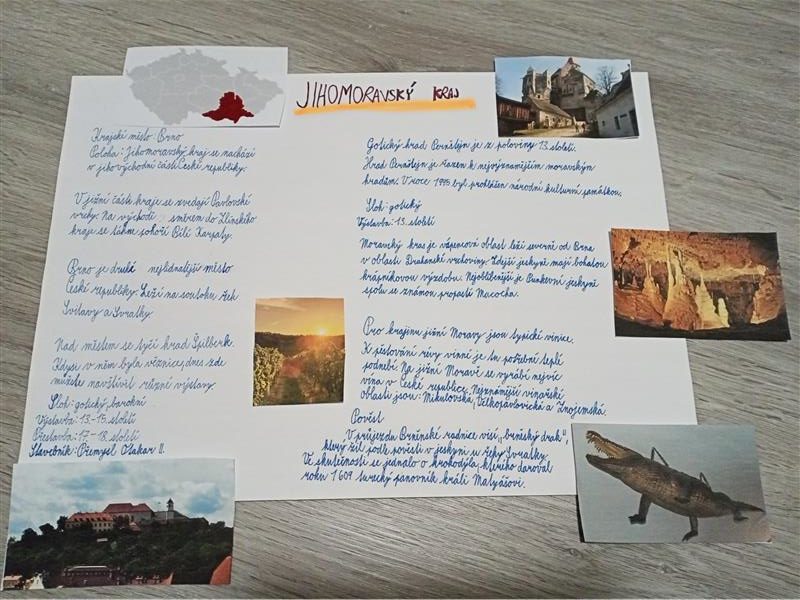 JIHOMORAVSKÝ KRAJ
Krajské město: Brno
Poloha: Jihomoravský kraj se nachází
v jihovýchodní části České republiky.
V jižní části kraje se zvedají Pavlovské
vrchy. Na východě směrem do Zlínského
kraje se táhne pohoří Bílé Karpaty.
Brno je druhá nejlidnatější město
České republiky. Leží na soutoku řek
Svitavy a Svratky.
Nad městem se tyčí hrad Špilberk.
Kdysi v něm byla věznice, dnes zde
můžete navštívit různé výstavy.
Sloh: gotický, barokní
Výstavba: 13.-15. století
Přestavba: 17.-18. století
Stavebník: Přemysl Otakar II.
Gotický hrad Pernštejn je z poloviny 13. století.
Hrad Pernštejn je řazen k nejvýznamnějším moravským
hradům. V roce 1995 byl prohlášen národní kulturní památkou.
Sloh: gotický
Výstavba: 13. století
Moravský kras je vápencová oblast leží severně od Brna
v oblasti Drahanské vrchoviny. Zdejší jeskyně mají bohatou
krápníkovou výzdobu. Nejoblíbenější je Punkevní jeskyně
spolu se známou propastí Macocha.
Pro krajinu jižní Moravy jsou typické vinice.
K pěstování révy vinné je tu potřebné teplé
podnebí. Na jižní Moravě se vyrábí nejvíc
vína v České republice. Nejznámější vinařské
oblasti jsou: Mikulovská, Velkopavlovická a Znojemská.
Pověst
V průjezdu Brněnské radnice visí „brněnský drak",
který žil podle pověsti v jeskyni u řeky Svratky.
Ve skutečnosti se jednalo o krokodýla, kterého daroval
roku 1609 turecký panovník králi Matyášovi.